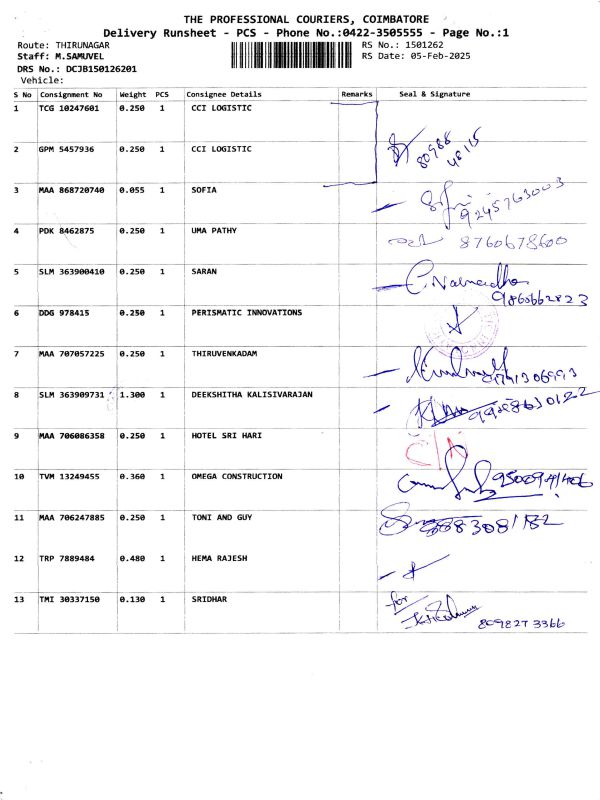 THE PROFESSIONAL COURIERS, COIMBATORE
Delivery Runsheet - PCS - Phone No.:0422-3505555 - Page No.:1
Route: THIRUNAGAR RS No.: 1501262
Staff: M.SAMUVEL RS Date: 05-Feb-2025
DRS No.: DCJB150126201
Vehicle:
S No Consignment No Weight PCS Consignee Details Remarks Seal & Signature
1 TCG 10247601 0.250 1 CCI LOGISTIC
80988
48115
2 GPM 5457936 0.250 1 CCI LOGISTIC
3 MAA 868720740 0.055 1 SOFIA 9245763003
4 PDK 8462875 0.250 1 UMA PATHY 8760678600
5 SLM 363900410 0.250 1 SARAN
9860662823
6 DDG 978415 0.250 1 PERISMATIC INNOVATIONS
7 MAA 707057225 0.250 1 THIRUVENKADAM
8 SLM 363909731 1.300 1 DEEKSHITHA KALISIVARAJAN
9 MAA 706086358 0.250 1 HOTEL SRI HARI
10 TVM 13249455 0.360 1 OMEGA CONSTRUCTION
11 MAA 706247885 0.250 1 TONI AND GUY
12 TRP 7889484 0.480 1 HEMA RAJESH
13 TMI 30337150 0.130 1 SRIDHAR for
8098273366